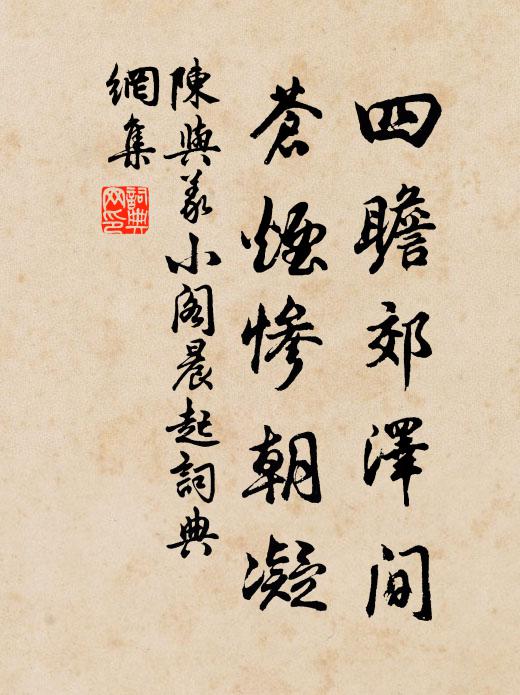 四瞻郊澤间
蒼煙惨朝凝
陳與義小阁晨起詞典
網集
詞典
网印